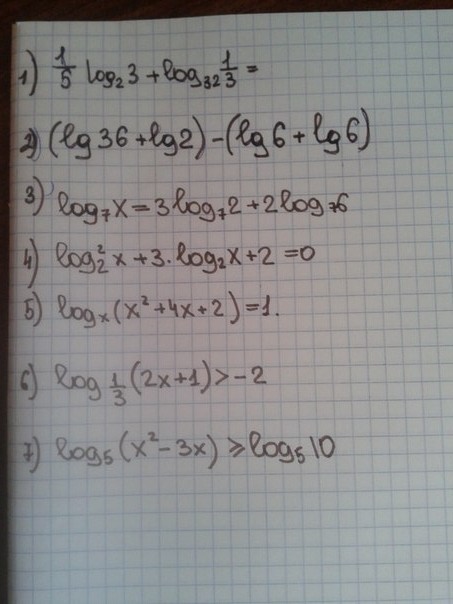 1) 1/5 log₂3 + log₃₂ 1/3 =
2) (lg 36 + lg 2) - (lg 6 + lg 6)
3) log₇x = 3 log₇2 + 2 log₇6
4) log₂²x + 3 · log₂x + 2 = 0
5) logₓ(x² + 4x + 2) = 1.
6) log_{1/3}(2x + 1) > -2
7) log₅(x² - 3x) ≥ log₅10